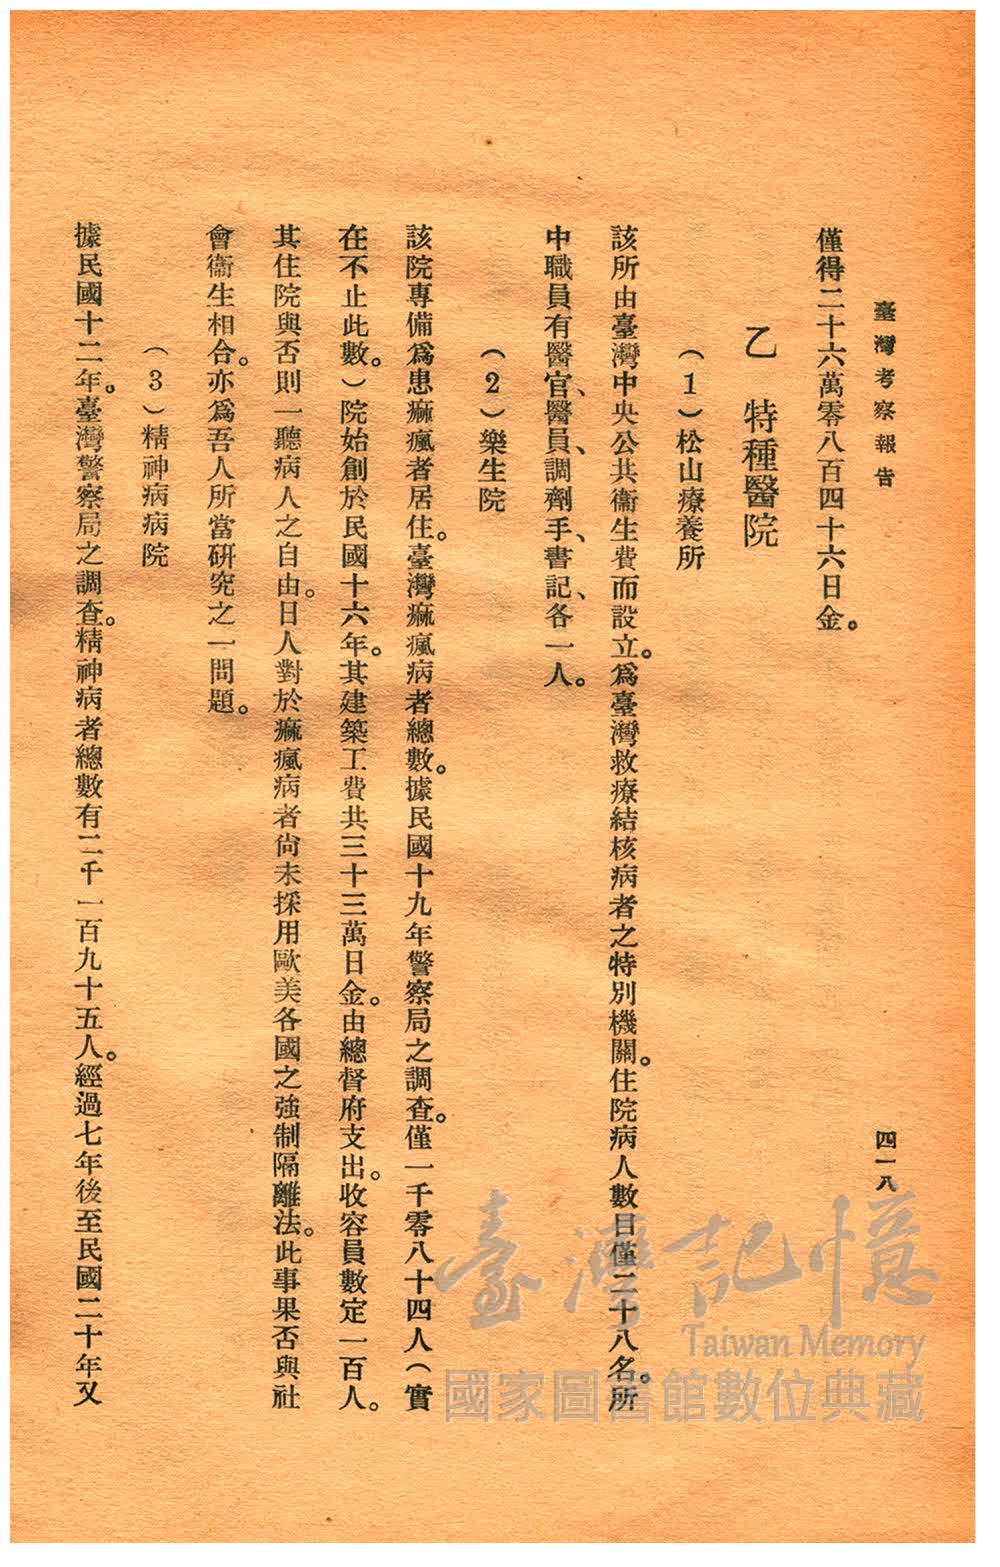 臺灣考察報告
四一八
僅得二十六萬零八百四十六日金。
乙 特種醫院
（1）松山療養所
該所由臺灣中央公共衞生費而設立。爲臺灣救療結核病者之特別機關。住院病人數目僅二十八名。所
中職員有醫官、醫員、調劑手、書記、各一人。
（2）樂生院
該院專備爲患痲瘋者居住。臺灣痲瘋病者總數。據民國十九年警察局之調查。僅一千零八十四人（實
在不止此數。）院始創於民國十六年。其建築工費共三十三萬日金。由總督府支出。收容員數定一百人。
其住院與否則一聽病人之自由。日人對於痲瘋病者尙未採用歐美各國之強制隔離法。此事果否與社
會衞生相合。亦爲吾人所當研究之一問題。
（3）精神病病院
據民國十二年。臺灣警察局之調查。精神病者總數有二千一百九十五人。經過七年後至民國二十年又
臺灣記憶
Taiwan Memory
國家圖書館數位典藏